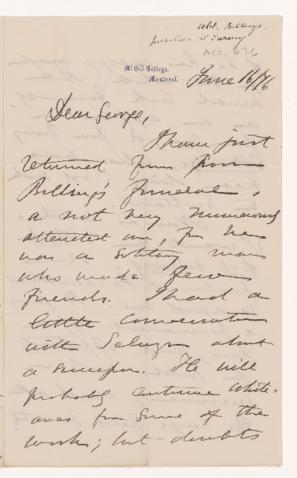 Abt. Billings.
ACC. 976
McGill College,
Montreal.
June 16/76
Dear George,
I have just
returned from poor
Billings's funeral,
a not very numerously
attended one, for he
was a solitary man
who made few
friends. I had a
little conversation
with Selwyn about
a successor. He will
probably continue White-
aves for some of the
work; but doubts